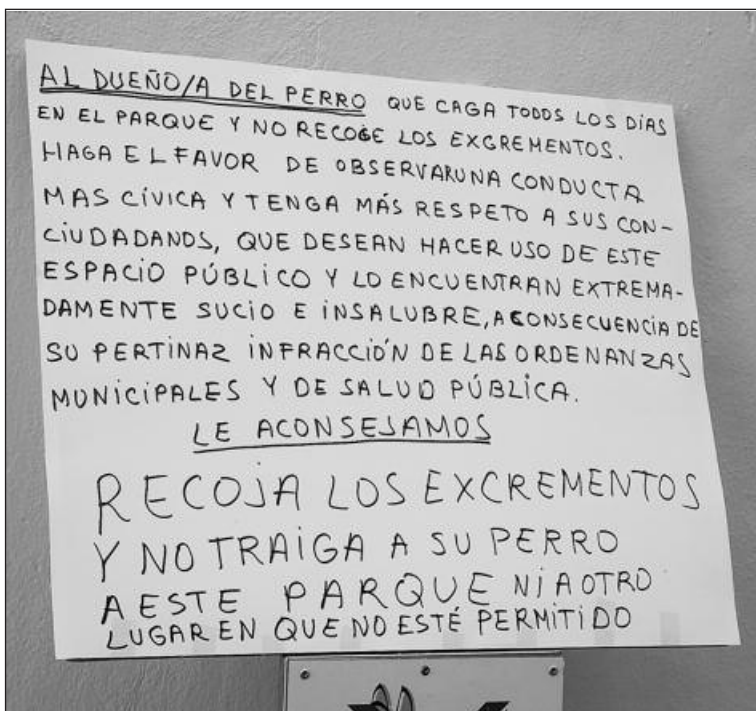 AL DUEÑO/A DEL PERRO QUE CAGA TODOS LOS DÍAS
EN EL PARQUE Y NO RECOGE LOS EXCREMENTOS.
HAGA EL FAVOR DE OBSERVAR UNA CONDUCTA
MAS CÍVICA Y TENGA MÁS RESPETO A SUS CON-
CIUDADANOS, QUE DESEAN HACER USO DE ESTE
ESPACIO PÚBLICO Y LO ENCUENTRAN EXTREMA-
DAMENTE SUCIO E INSALUBRE, A CONSECUENCIA DE
SU PERTINAZ INFRACCIÓN DE LAS ORDENANZAS
MUNICIPALES Y DE SALUD PÚBLICA.
LE ACONSEJAMOS
RECOJA LOS EXCREMENTOS
Y NO TRAIGA A SU PERRO
A ESTE PARQUE NI A OTRO
LUGAR EN QUE NO ESTÉ PERMITIDO